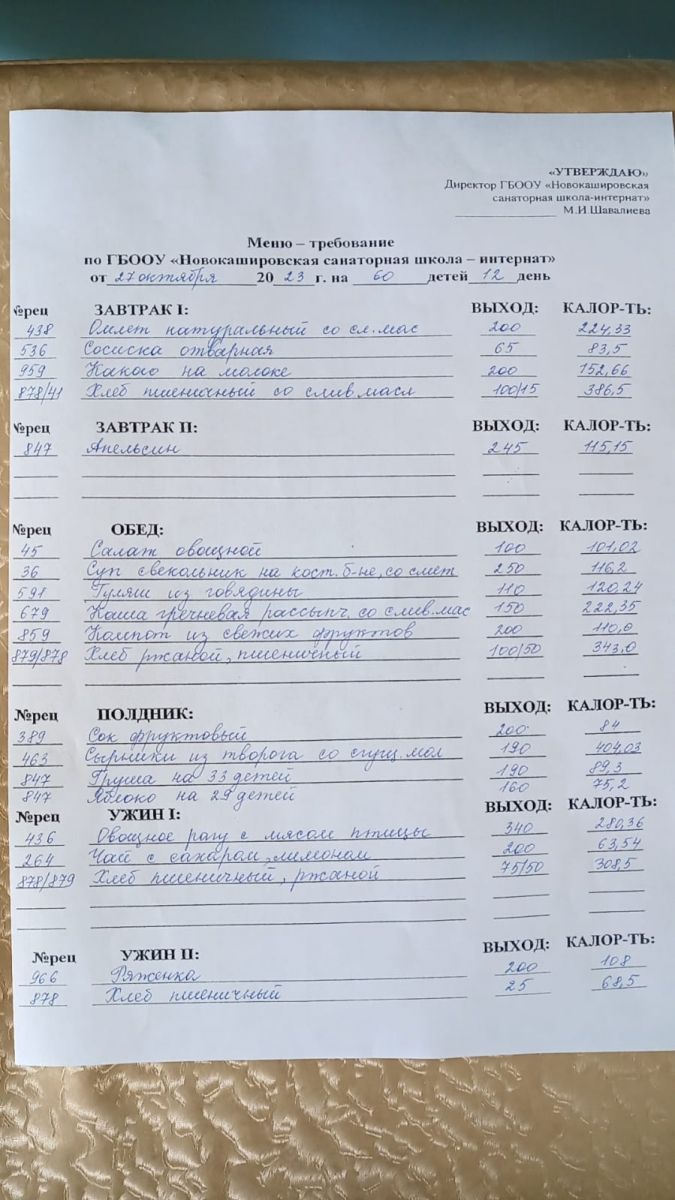 «УТВЕРЖДАЮ»
Директор ГБООУ «Новокашировская
санаторная школа-интернат»
М.И.Шавалиева
Меню – требование
по ГБООУ «Новокашировская санаторная школа – интернат»
от 27 октября 20 23 г. на 60 детей 12 день
№рец ЗАВТРАК I: ВЫХОД: КАЛОР-ТЬ:
438 Омлет натуральный со сл.мас 200 224,33
536 Сосиска отварная 65 83,5
959 Какого на молоке 200 152,66
878/41 Хлеб пшеничный со слив.масл 100/15 386,5
№рец ЗАВТРАК II: ВЫХОД: КАЛОР-ТЬ:
847 Апельсин 245 115,15
№рец ОБЕД: ВЫХОД: КАЛОР-ТЬ:
45 Салат овощной 100 101,02
36 Суп свекольник на кост. б-не, со смет 250 116,2
591 Гуляш из говядины 110 120,24
679 Каша гречневая рассыпч. со слив.мас 150 222,35
859 Компот из свежих фруктов 200 110,0
879/878 Хлеб ржаной, пшеничный 100/50 343,0
№рец ПОЛДНИК: ВЫХОД: КАЛОР-ТЬ:
389 Сок фруктовый 200 84
463 Сырники из творога со сгущ. мол 190 404,03
847 Груша на 33 детей 190 89,3
847 Яблоко на 29 детей 160 75,2
№рец УЖИН I: ВЫХОД: КАЛОР-ТЬ:
436 Овощное рагу с мясом птицы 340 280,36
264 Чай с сахаром, лимоном 200 63,54
878/879 Хлеб пшеничный, ржаной 75/50 308,5
№рец УЖИН II: ВЫХОД: КАЛОР-ТЬ:
966 Ряженка 200 108
878 Хлеб пшеничный 25 68,5